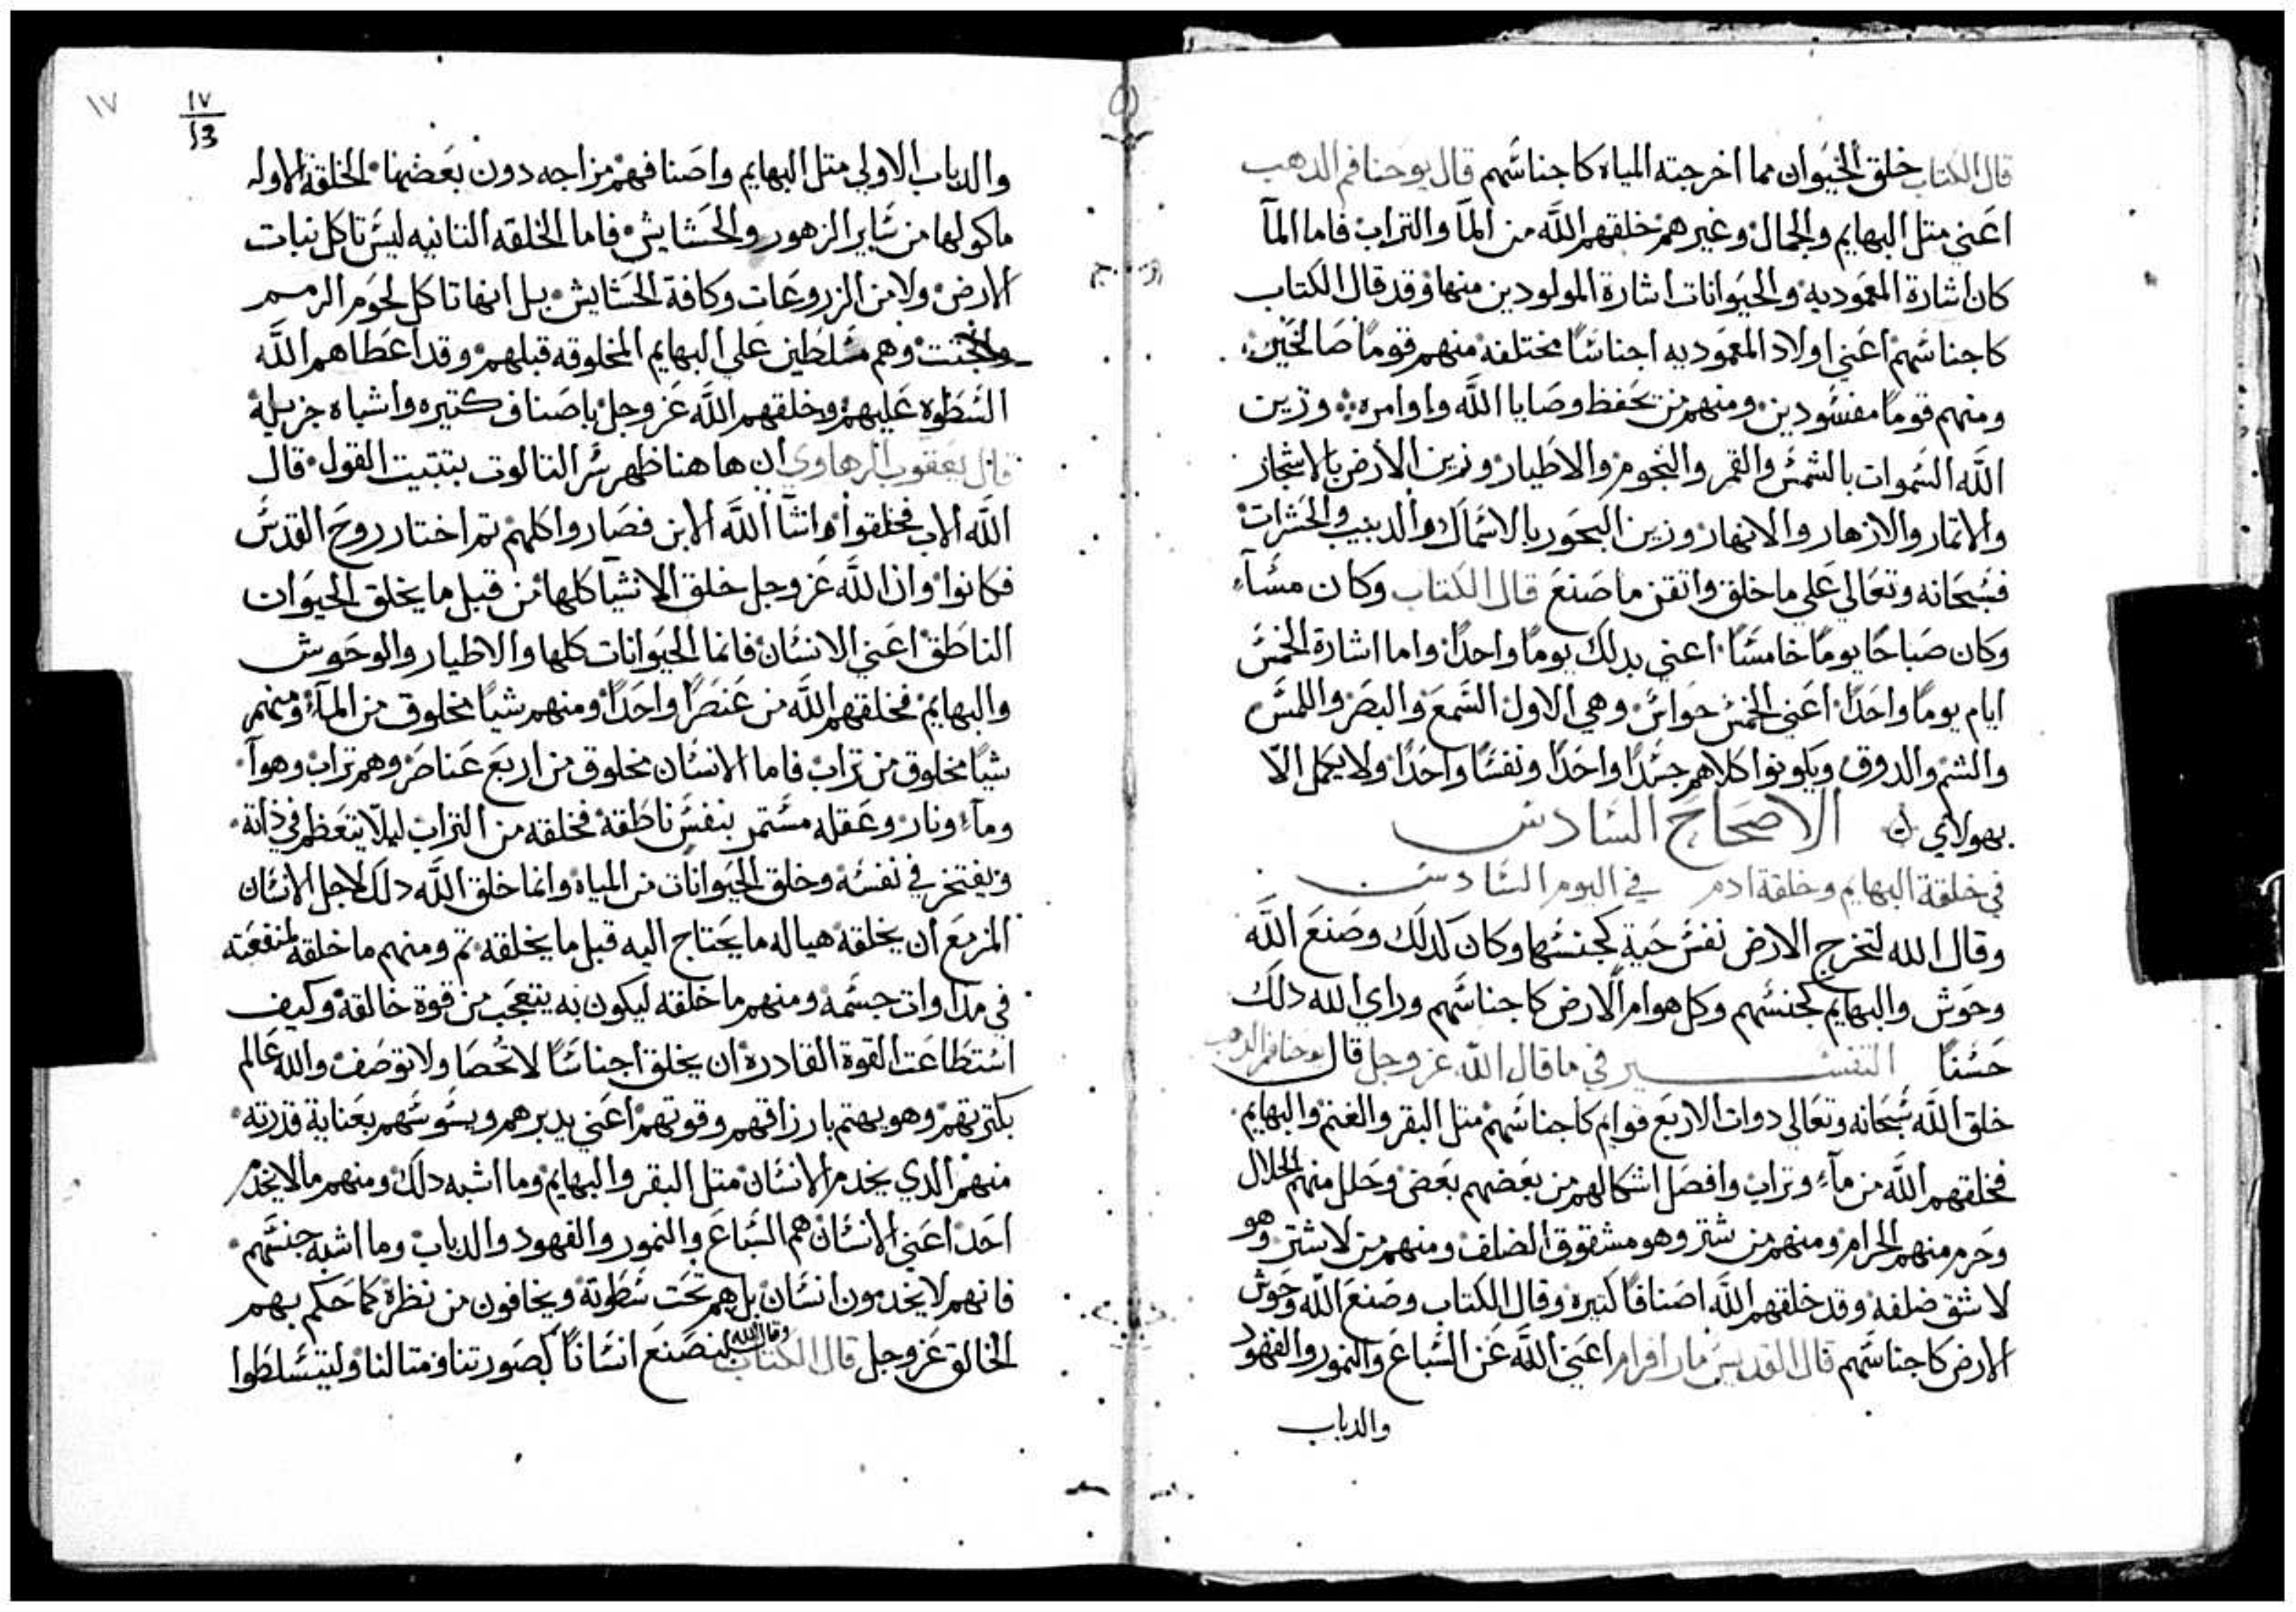 قال الكتاب خلق الحيوان مما اخرجته المياه كاجناسهم قال يوحنا فم الدهب
اعني متل البهايم والجمال وغيرهم خلقهم الله من المآ والتراب فاما المآ
كان اشارة المعموديه والحيوانات اشارة المولودين منها وقد قال الكتاب
كاجناسهم اعني اولاد المعموديه اجناسًا مختلفه منهم قومًا صالحين
ومنهم قومًا مفسودين ومنهم من يحفظ وصايا الله واوامره وزين
الله السموات بالشمس والقمر والنجوم والاطيار وزين الارض بالاشجار
والاتمار والازهار والانهار وزين البحور بالاسماك والدبيب والحشرات
فسبحانه وتعالي علي ما خلق واتقن ما صنع قال الكتاب وكان مسآء
وكان صباحًا يومًا خامسًا اعني بدلك يومًا واحدًا واما اشارة الخمس
ايام يومًا واحدًا اعني الخمس حواس وهي الاول السمع والبصر واللمس
والشم والدوق ويكونوا كلاهم جسدًا واحدًا ونفسًا واحدًا ولا يكمل الا
بهولاي الاصحاح السادس
في خلقة البهايم وخلقة ادم في اليوم السادس
وقال الله لتخرج الارض نفس حية كجنسها وكان كدلك وصنع الله
وحوش والبهايم كجنسهم وكل هوام الارض كاجناسهم وراي الله دلك
حسنًا التفسير في ما قال الله عز وجل قال يوحنا فم الدهب
خلق الله سبحانه وتعالي دوات الاربع قوايم كاجناسهم متل البقر والغنم والبهايم
فخلقهم الله من مآء وتراب وافصل اشكالهم من بعضهم بعض وحلل منهم الحلال
وحرم منهم الحرام ومنهم من يشتر وهو مشقوق الضلف ومنهم من لا يشتر وهو
لا شق ضلفه وقد خلقهم الله اصنافًا كتيره وقال الكتاب وصنع الله وحوش
الارض كاجناسهم قال القديس مار افرام اعني الله عن السباع والنمور والفهود
والدباب
١٧
١٧
والدباب الاولي متل البهايم واصنافهم مزاجه دون بعضها الخلقة الاوله
ماكولها من ساير الزهور والحشايش فاما الخلقه التانيه ليس تاكل نبات
الارض ولا من الزروعات وكافة الحشايش بل انها تاكل لحوم الرمم
وهم مسلطين علي البهايم المخلوقه قبلهم وقد اعطاهم الله
السطوه عليهم وخلقهم الله عز وجل باصناف كتيره واشباه جزيله
قال يعقوب الرهاوي ان هاهنا ظهر سر التالوت بتتبيت القول قال
الله الاب فخلقوا وانشا الله الابن فصاروا كلهم تم اختار روح القدس
فكانوا وان الله عز وجل خلق الاشيا كلها من قبل ما يخلق الحيوان
الناطق اعني الانسان فانما الحيوانات كلها والاطيار والوحوش
والبهايم فخلقهم الله من عنصرًا واحدًا ومنهم شيًا مخلوق من المآء ومنهم
شيًا مخلوق من تراب فاما الانسان مخلوق من اربع عناصر وهم تراب وهوآ
ومآء ونار وعقله مستمر بنفس ناطقة فخلقه من التراب ليلا يتعظم في ذاته
ويفتخر في نفسه وخلق الحيوانات من المياه وانما خلق الله دلك لاجل الانسان
المزمع ان يخلقه هياله ما يحتاج اليه قبل ما يخلقه تم ومنهم ما خلقه لمنفعته
في مداوات جسمه ومنهم ما خلقه ليكون به يتعجب من قوة خالقه وكيف
استطاعت القوة القادرة ان يخلق اجناسًا لا تحصا ولا توصف والله عالم
بكتريتهم وهو يهتم بارزاقهم وقوتهم اعني يدبرهم ويسوسهم بعناية قدرته
منهم الدي يخدم الانسان متل البقر والبهايم وما اشبه دلك ومنهم ما لا يخدم
احد اعني الانسان هم السباع والنمور والفهود والدباب وما اشبه جنسهم
فانهم لا يخدمون انسان بل هم تحت سطوته ويخافون من نظره كما حكم بهم
الخالق عز وجل قال الكتاب وقال الله لنصنع انسانًا كصورتنا ومتالنا وليتسلطوا